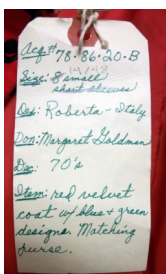 Acq# 78.86.20.B
Size: 8 small
short sleeves
Des: Roberta - Italy
Don: Margaret Goldman
Dec: 70's
Item: red velvet
coat w/ blue + green
designs. Matching
purse.